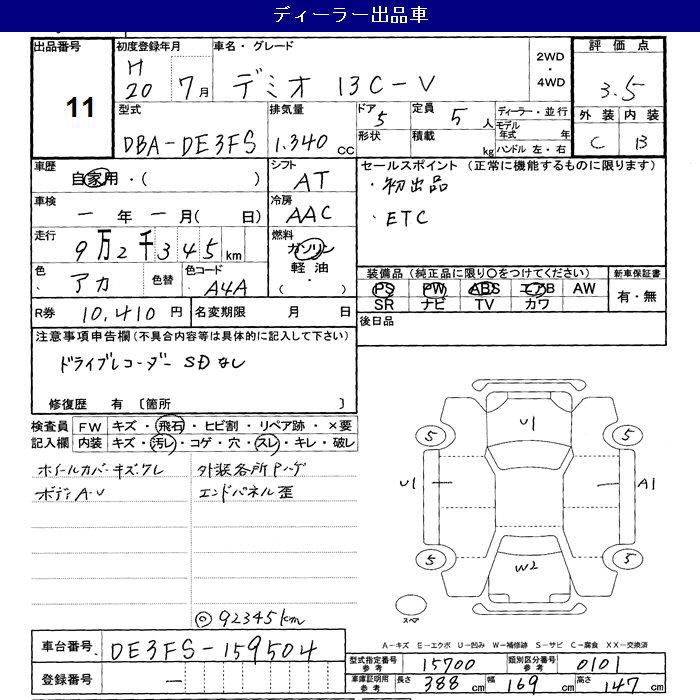 ディーラー出品車
出品番号 11
初度登録年月 H20 7月
車名・グレード デミオ 13C-V
2WD・4WD
評価点 3.5
外装 C 内装 B
型式 DBA-DE3FS
排気量 1.340 cc
ドア 5
形状
定員 5人
積載 kg
ディーラー・並行
モデル年式 年
ハンドル 左・右
車歴 自家用・( )
シフト AT
セールスポイント (正常に機能するものに限ります)
・初出品
・ETC
車検 ー年ー月( 日)
冷房 AAC
走行 9万2千345km
燃料 ガソリン・軽油・( )
色 アカ 色替
色コード A4A
装備品 (純正品に限り○をつけてください)
PS PW ABS エアB AW
SR ナビ TV カワ
新車保証書 有・無
R券 10,410円
名変期限 月 日
後日品
注意事項申告欄 (不具合内容等は具体的に記入して下さい)
ドライブレコーダー SDなし
修復歴 有 〔箇所 〕
検査員記入欄
FW キズ・飛石・ヒビ割・リペア跡・×要
内装 キズ・汚レ・コゲ・穴・スレ・キレ・破レ
ホイールカバーキズワレ
外装各所Pハゲ
ボディA・U
エンドパネル歪
◎92345km
U1
5 5
U1 A1
5 5
W2
スペア
A-キズ E-エクボ U-凹み W-補修跡 S-サビ C-腐食 XX-交換済
車台番号 DE3FS-159504
登録番号 ー
型式指定番号 参考 15700
類別区分番号 参考 0101
車庫証明用 参考 長さ 388 cm 幅 169 cm 高さ 147 cm